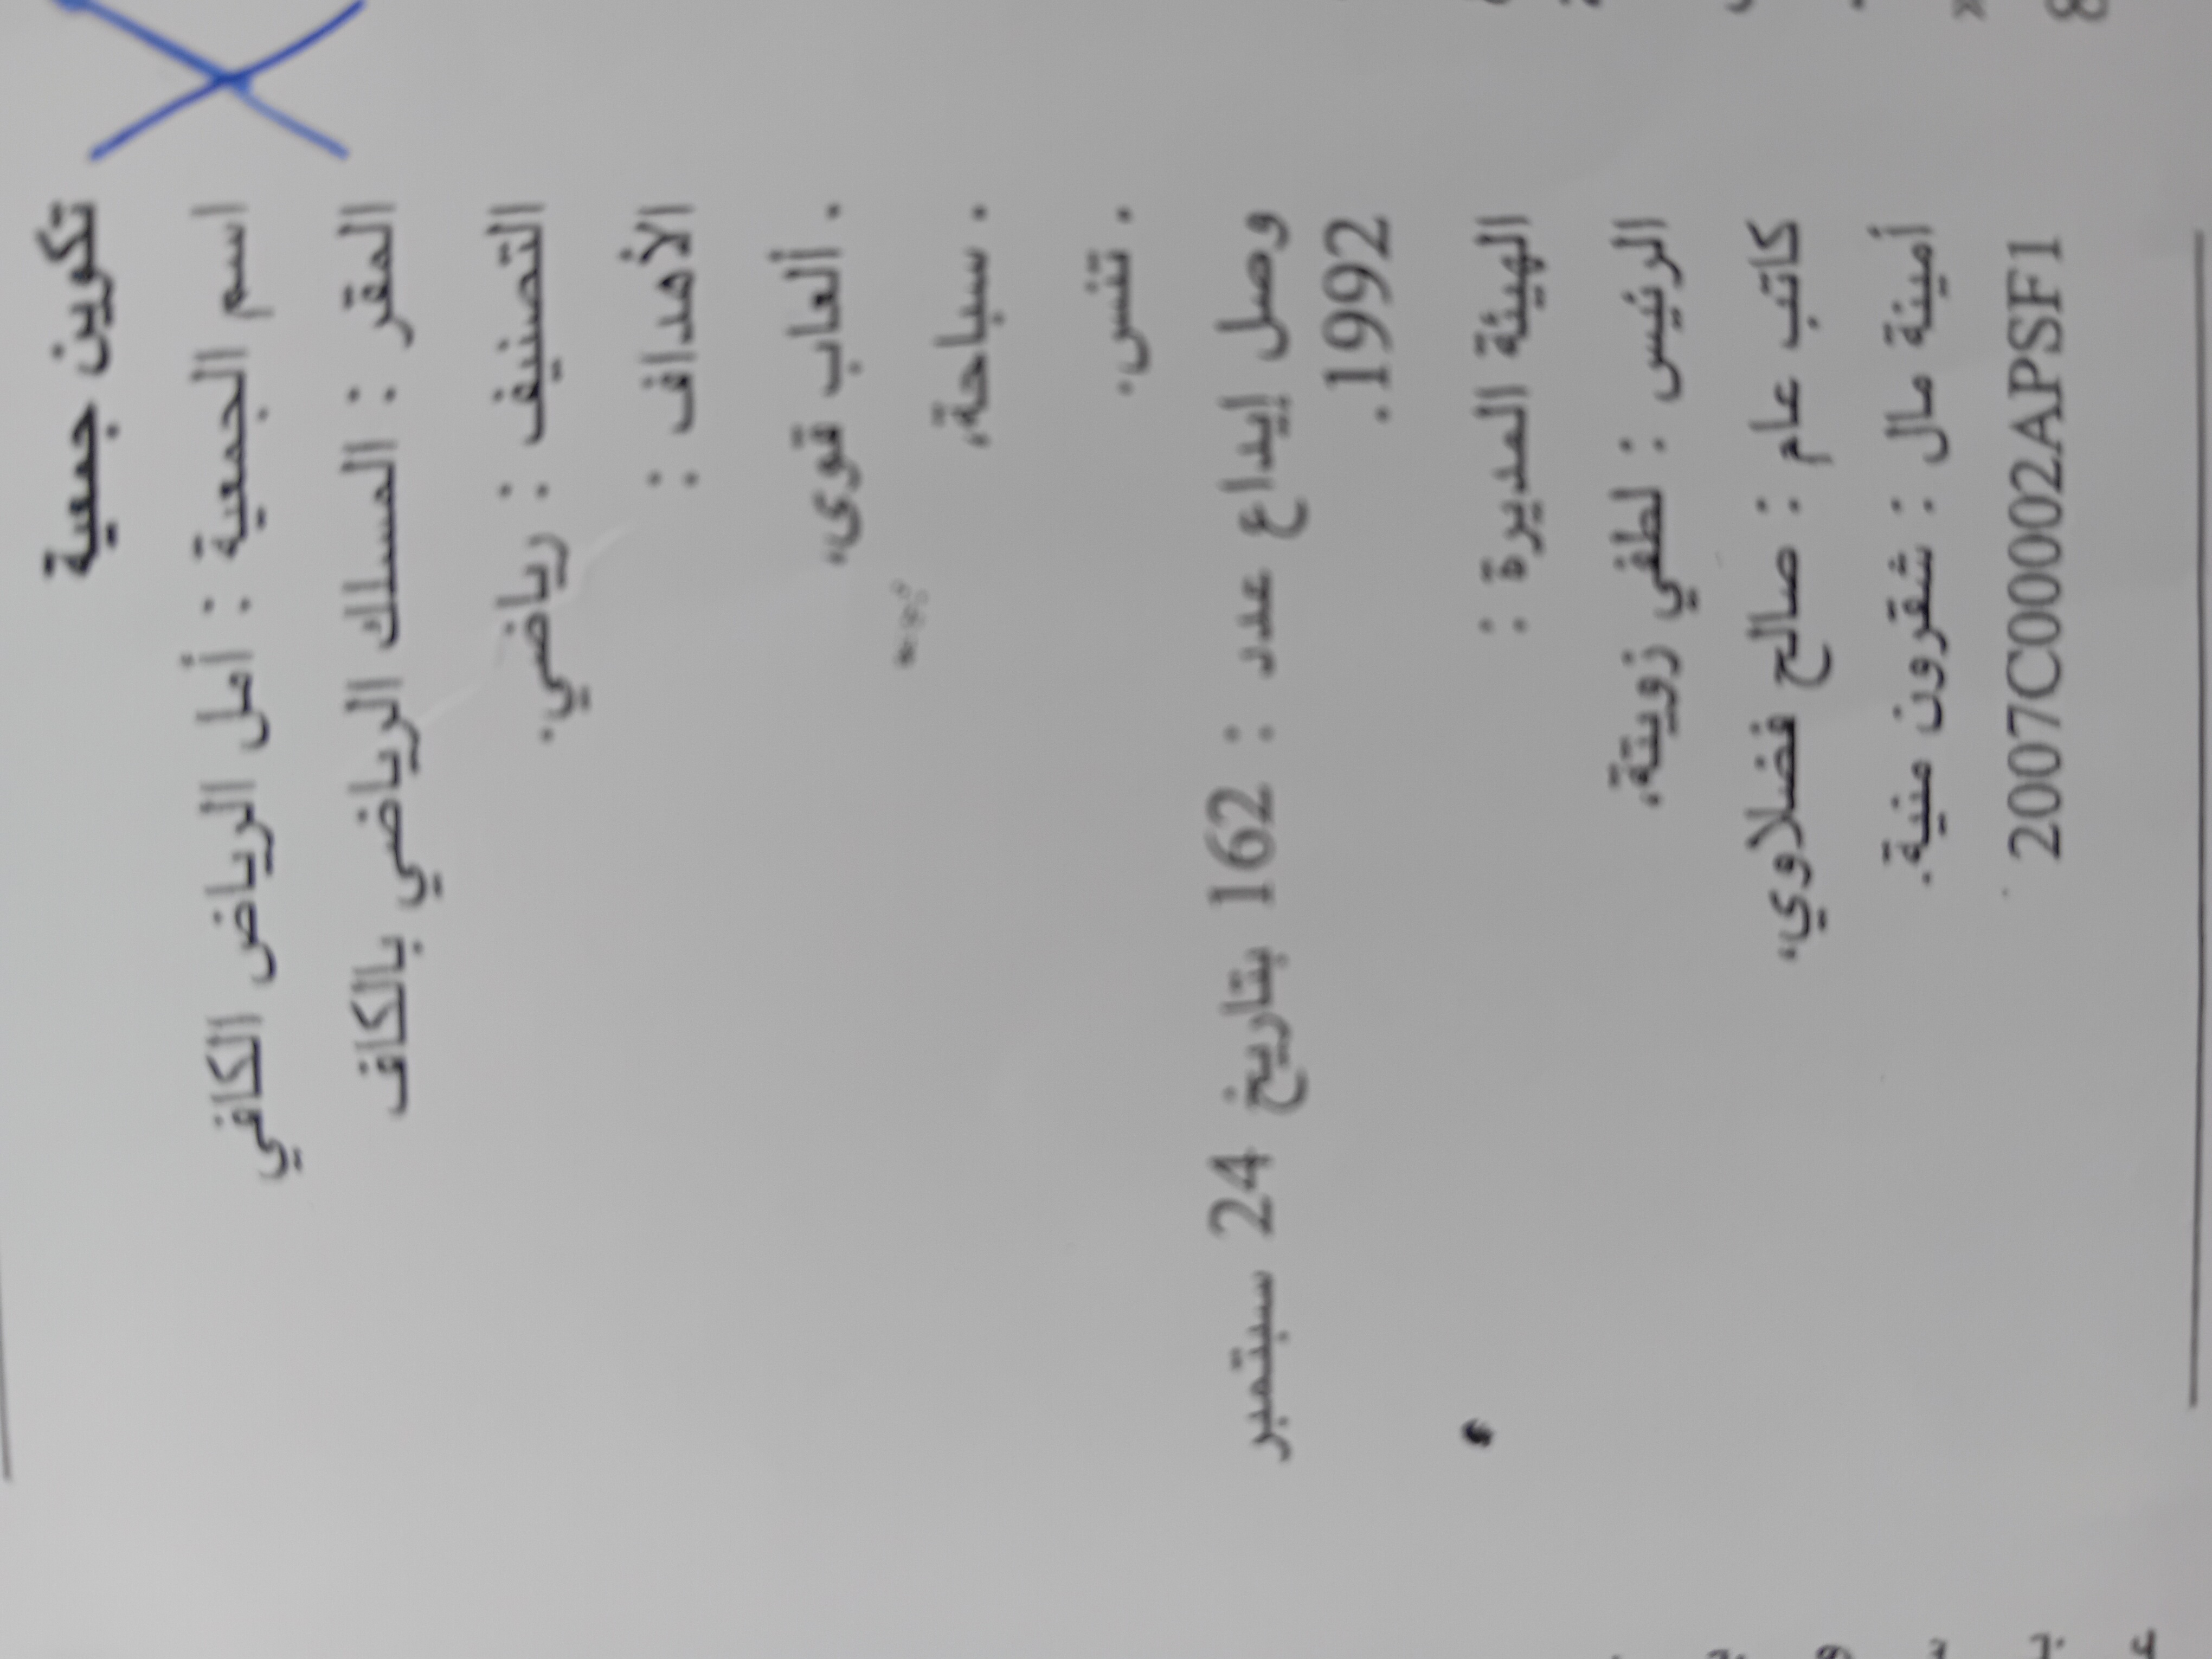 تكوين جمعية
اسم الجمعية : أمل الرياض الكافي
المقر : المسلك الرياضي بالكاف
التصنيف : رياضي.
الأهداف :
. ألعاب قوى،
. سباحة،
. تنس.
وصل إيداع عدد : 162 بتاريخ 24 سبتمبر
1992.
الهيئة المديرة :
الرئيس : لطفي زويتة،
كاتب عام : صالح فضلاوي،
أمينة مال : شقرون منية.
2007C00002APSF1